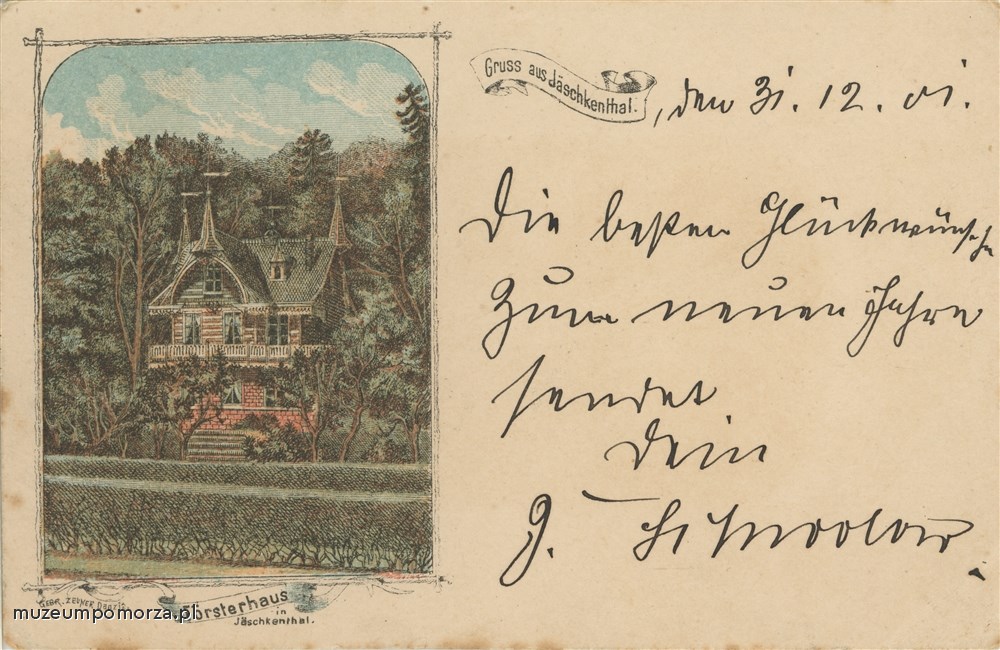 Gruss aus Jäschkenthal.
, den 31. 12. 01.
Die besten Glückwünsche
zum neuen Jahre
sendet
Dein
J.
GEBR. ZEUNER Danzig
Försterhaus
in
Jäschkenthal.
muzeumpomorza.pl